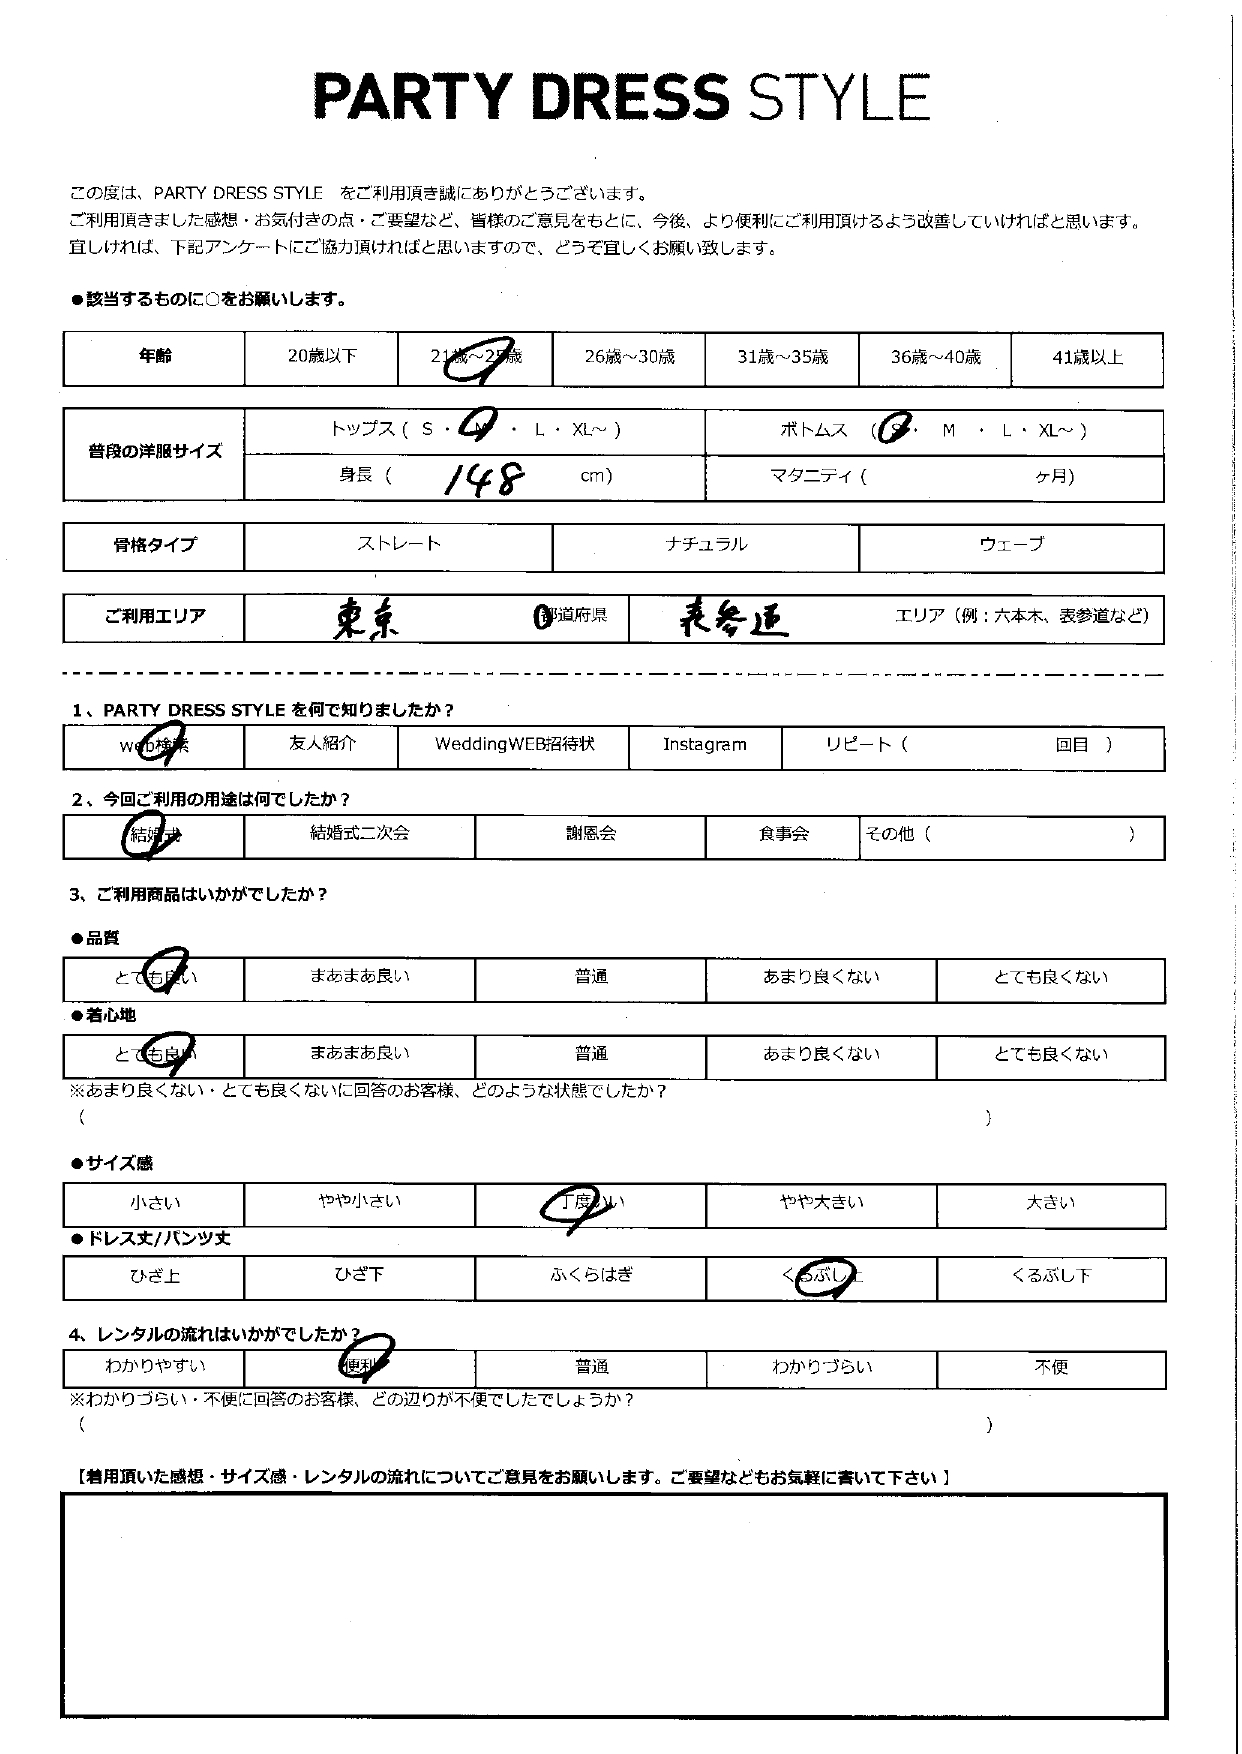 PARTY DRESS STYLE
この度は、PARTY DRESS STYLE をご利用頂き誠にありがとうございます。
ご利用頂きました感想・お気付きの点・ご要望など、皆様のご意見をもとに、今後、より便利にご利用頂けるよう改善していければと思います。
宜しければ、下記アンケートにご協力頂ければと思いますので、どうぞ宜しくお願い致します。
●該当するものに○をお願いします。
年齢 20歳以下 21歳～25歳 26歳～30歳 31歳～35歳 36歳～40歳 41歳以上
普段の洋服サイズ トップス ( S ・ M ・ L ・ XL～ ) ボトムス ( S ・ M ・ L ・ XL～ )
身長 ( 148 cm) マタニティ ( ヶ月)
骨格タイプ ストレート ナチュラル ウェーブ
ご利用エリア 東京 都道府県 表参道 エリア (例：六本木、表参道など)
1、PARTY DRESS STYLE を何で知りましたか？
web検索 友人紹介 WeddingWEB招待状 Instagram リピート ( 回目 )
2、今回ご利用の用途は何でしたか？
結婚式 結婚式二次会 謝恩会 食事会 その他 ( )
3、ご利用商品はいかがでしたか？
●品質
とても良い まあまあ良い 普通 あまり良くない とても良くない
●着心地
とても良い まあまあ良い 普通 あまり良くない とても良くない
※あまり良くない・とても良くないに回答のお客様、どのような状態でしたか？
( )
●サイズ感
小さい やや小さい 丁度いい やや大きい 大きい
●ドレス丈/パンツ丈
ひざ上 ひざ下 ふくらはぎ くるぶし上 くるぶし下
4、レンタルの流れはいかがでしたか？
わかりやすい 便利 普通 わかりづらい 不便
※わかりづらい・不便に回答のお客様、どの辺りが不便でしたでしょうか？
( )
【着用頂いた感想・サイズ感・レンタルの流れについてご意見をお願いします。ご要望などもお気軽に書いて下さい 】